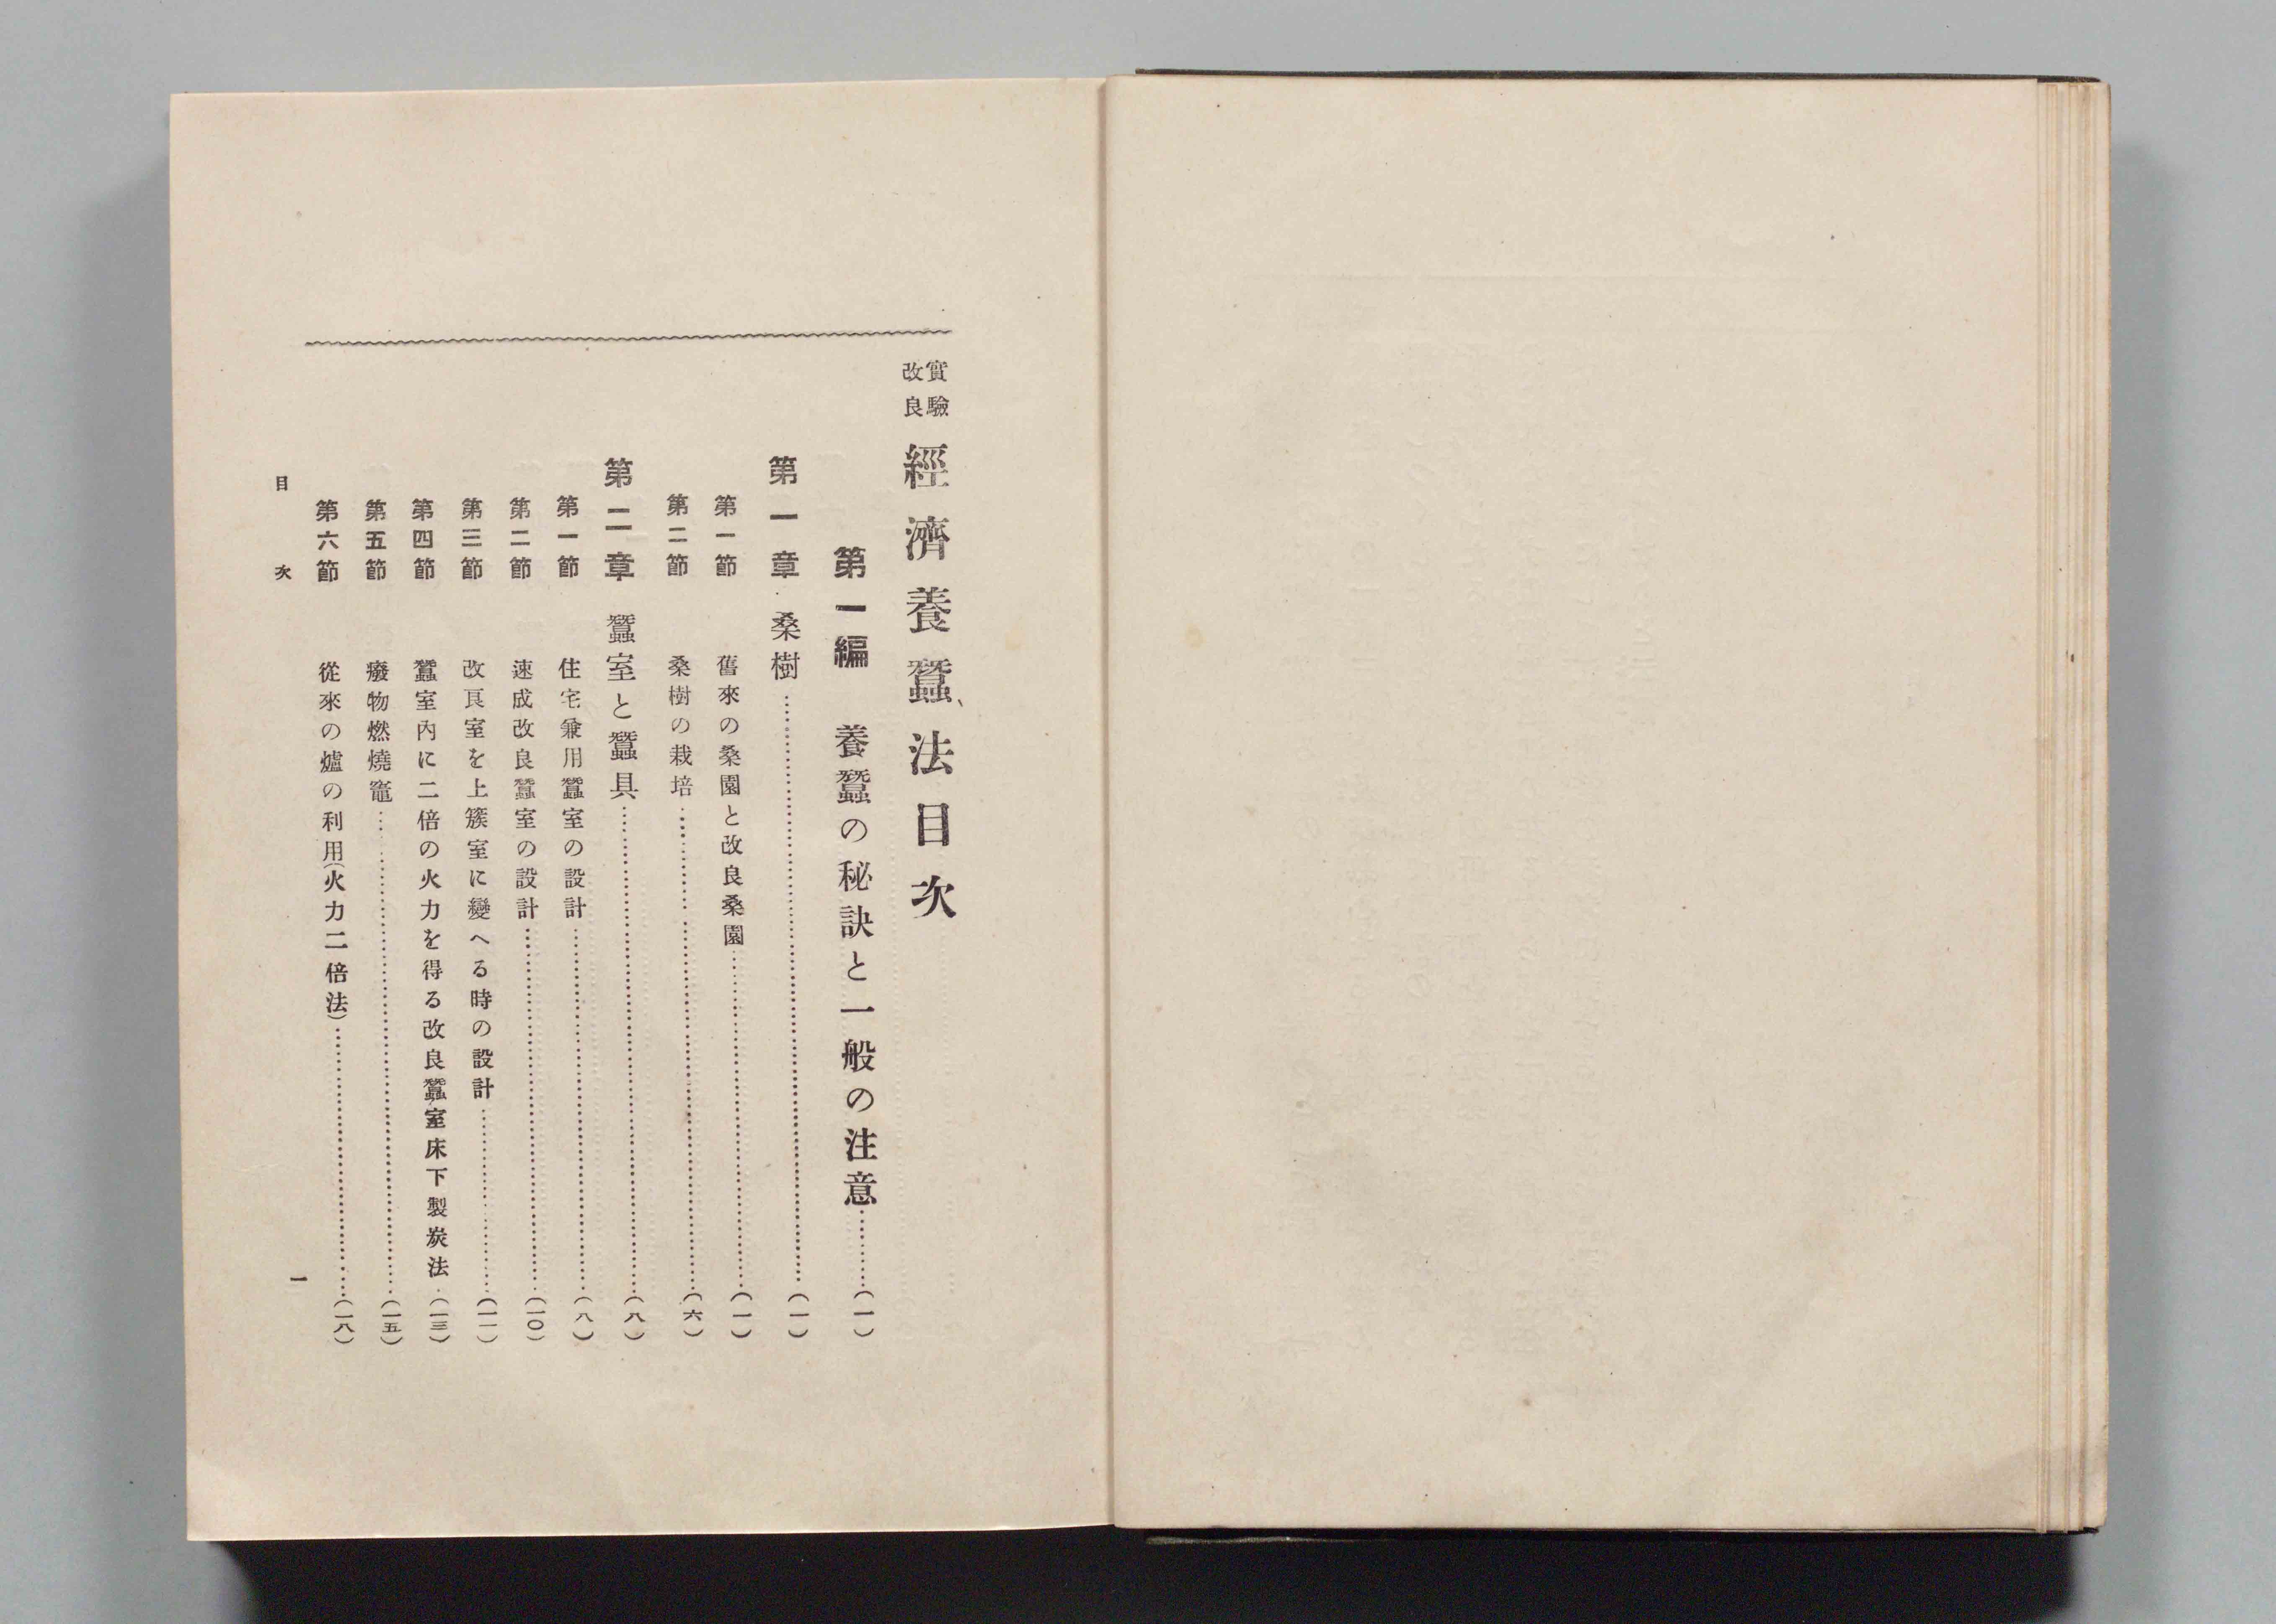 實驗
改良
經濟養蠶法目次
第一編 養蠶の秘訣と一般の注意…………(一)
第一章 桑樹…………(一)
第一節 舊來の桑園と改良桑園…………(一)
第二節 桑樹の栽培…………(六)
第二章 蠶室と蠶具…………(八)
第一節 住宅兼用蠶室の設計…………(八)
第二節 速成改良蠶室の設計…………(一〇)
第三節 改良室を上簇室に變へる時の設計…………(一一)
第四節 蠶室內に二倍の火力を得る改良蠶室床下製炭法…(一三)
第五節 癈物燃燒竈…………(一五)
第六節 從來の爐の利用(火力二倍法)…………(一八)
目次
一